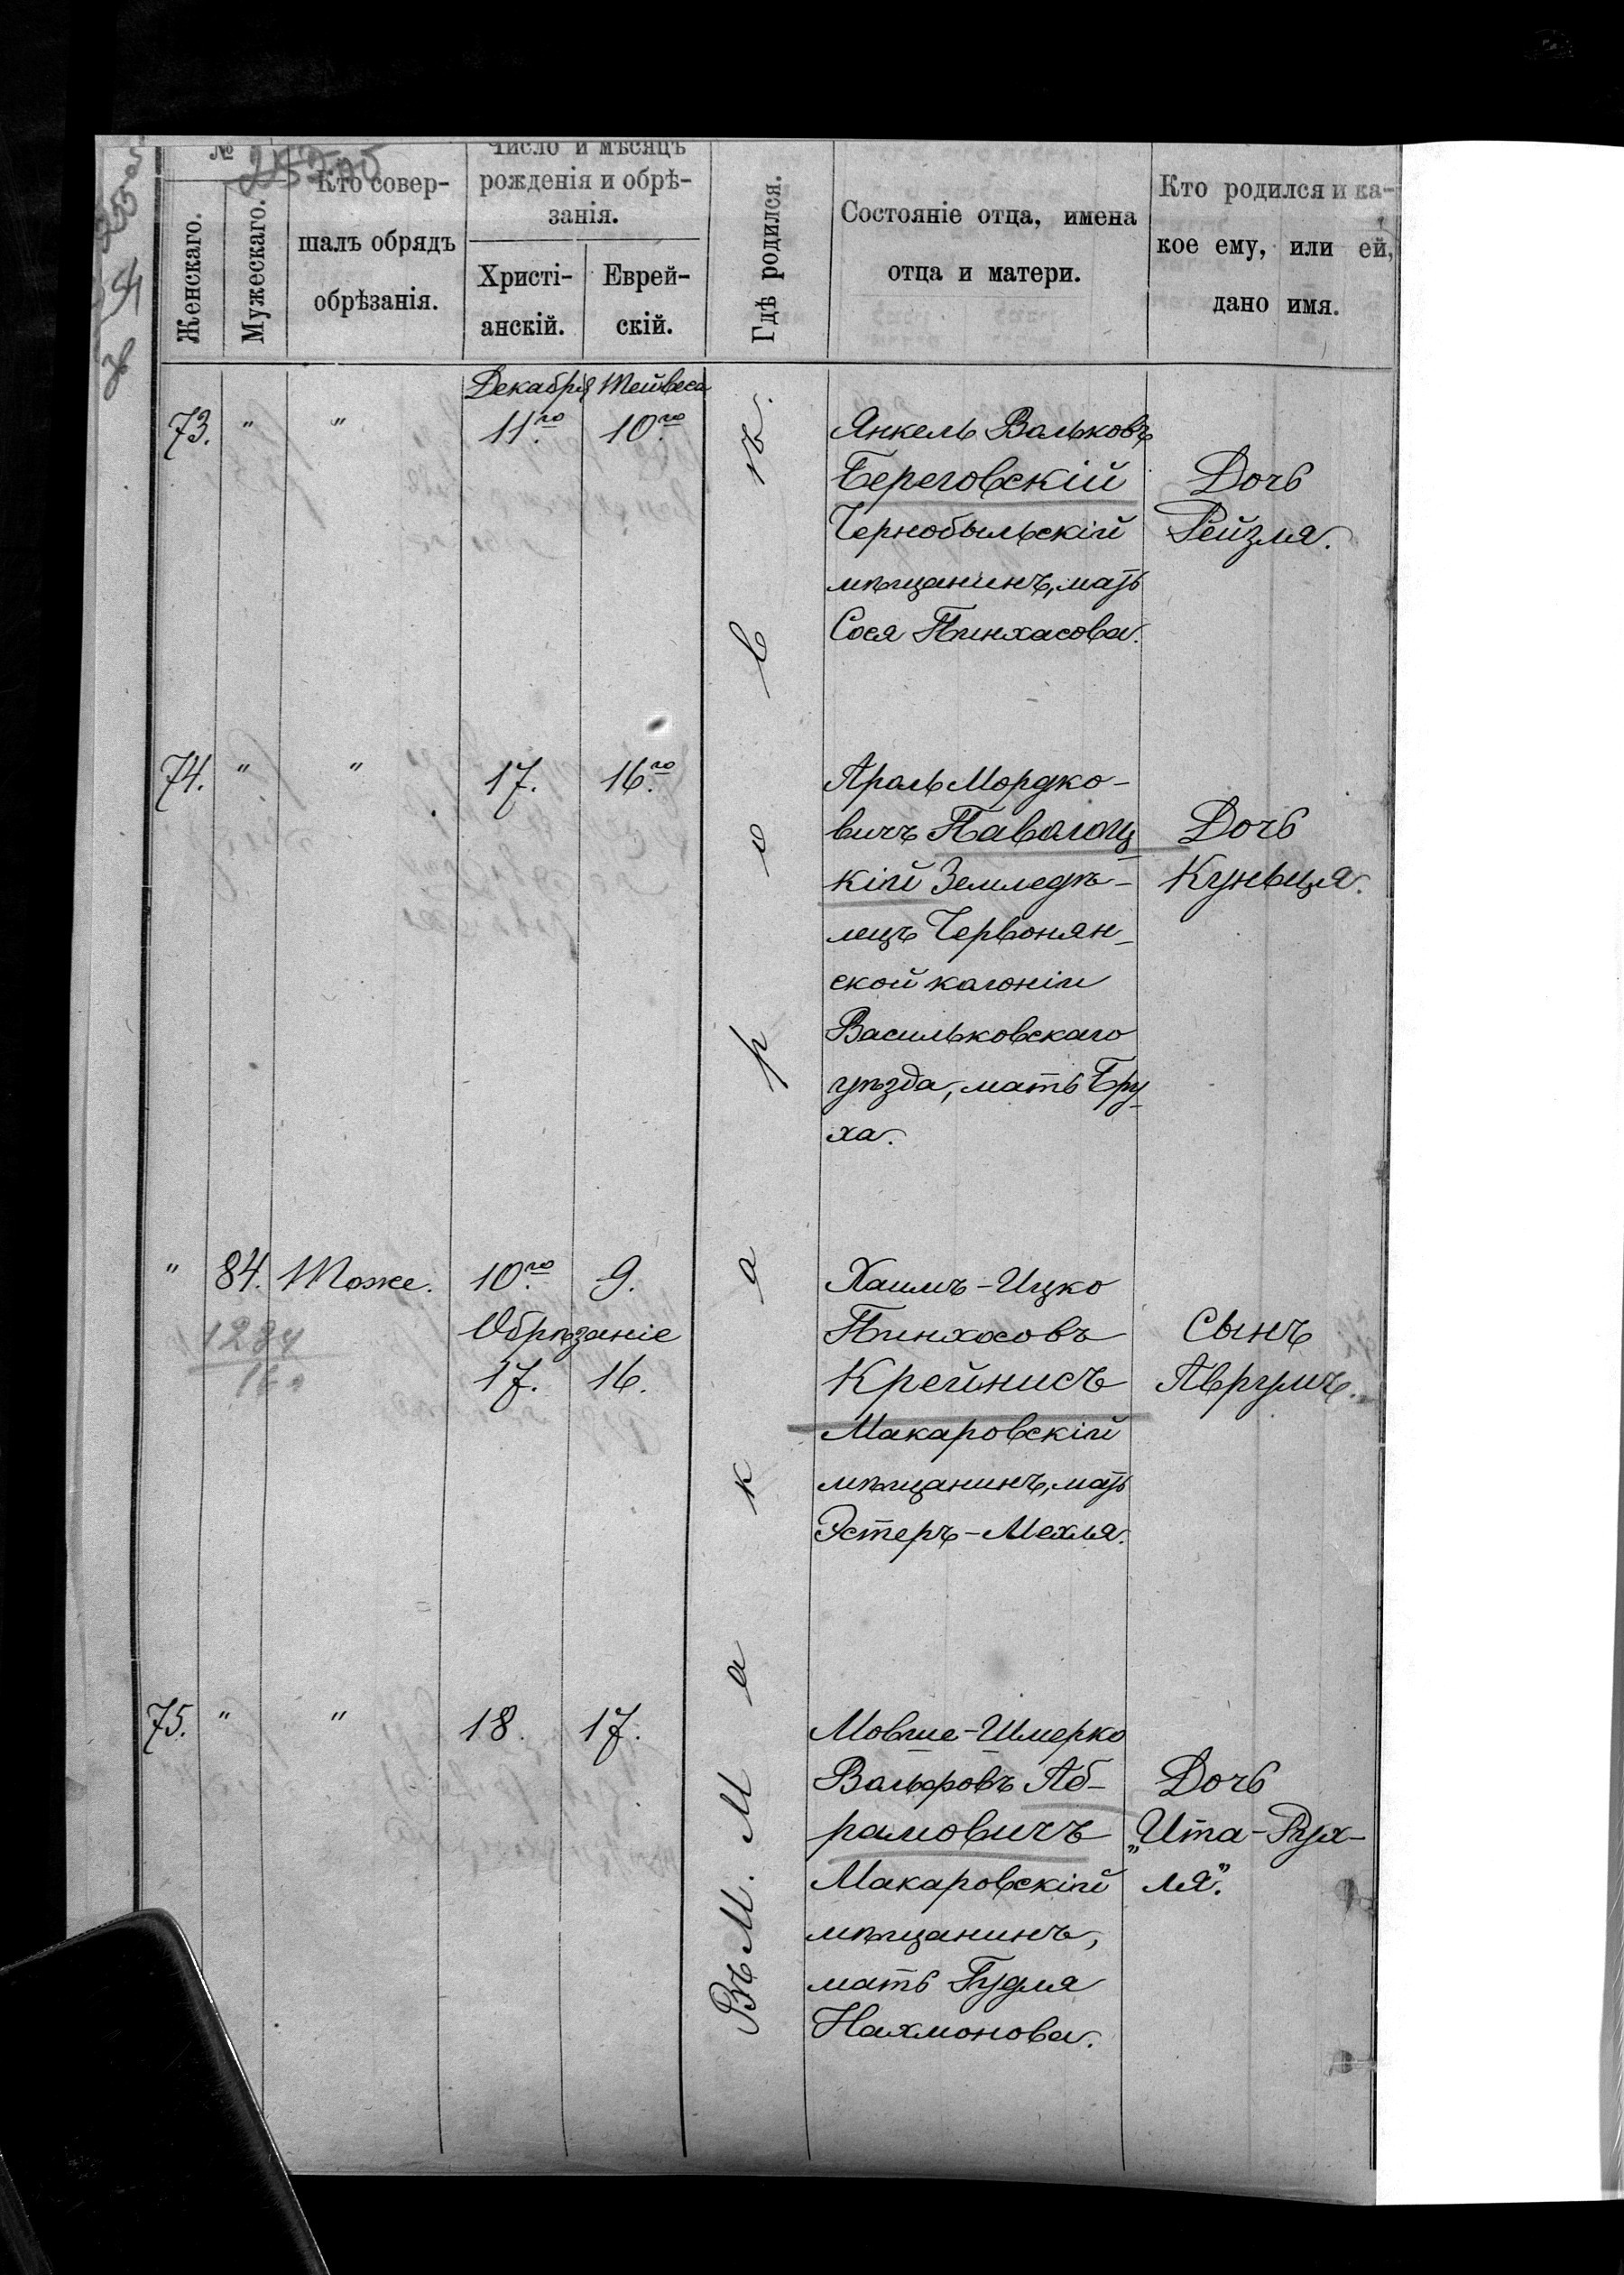 №
Женскаго.
Мужескаго.
Кто совер-
шалъ обрядъ
обрѣзанія.
Число и мѣсяцъ
рожденія и обрѣ-
занія.
Христі-
анскій.
Еврей-
скій.
Гдѣ родился.
Состояніе отца, имена
отца и матери.
Кто родился и ка-
кое ему, или ей,
дано имя.
Въ м. Макаровѣ.
Декабря Тейвеса
73. " " 11го 10го
Янкель Вальковъ
Береговскій
Чернобыльскій
мѣщанинъ, мать
Сося Пинхасова.
Дочь
Рейзля.
74. " " 17. 16го
Араль Мордко-
вичъ Паволоц-
кій Земледѣ-
лецъ Червонян-
ской калоніи
Васильковскаго
уѣзда, мать Бру-
ха.
Дочь
Куньця.
" 84. Тоже. 10го 9.
Обрѣзаніе
17. 16.
1284
Хаимъ-Ицко
Пинхосовъ
Крейнисъ
Макаровскій
мѣщанинъ, мать
Эстеръ-Мехля.
Сынъ
Аврумъ.
75. " " 18. 17.
Мовше-Шмерко
Вольфовъ Аб-
рамовичъ
Макаровскій
мѣщанинъ,
мать Гудля
Нахмонова.
Дочь
„Ита-Рух-
ля".